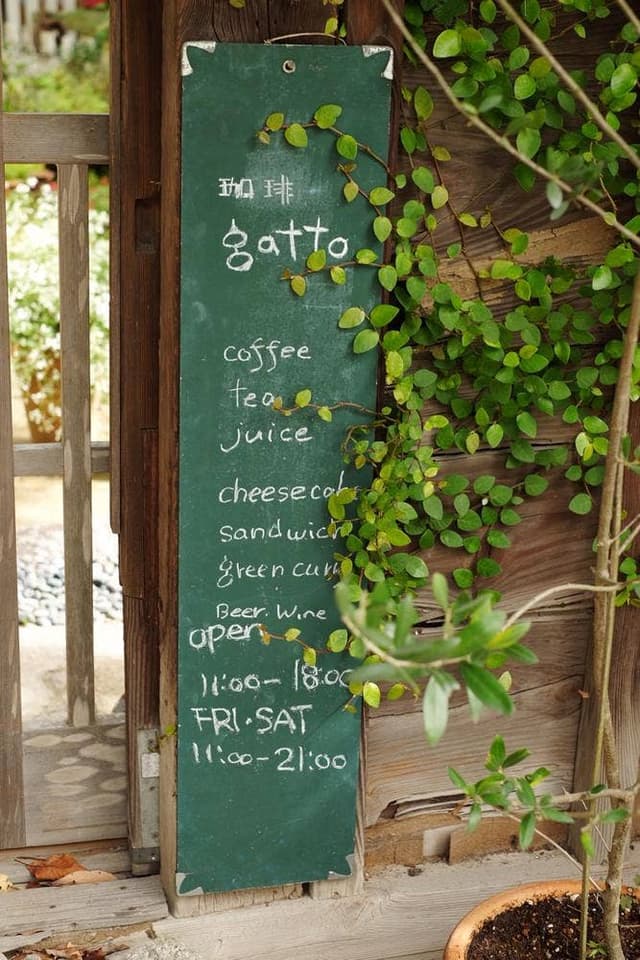 珈琲
gatto
coffee
tea
juice
cheesecake
sandwich
green curry
Beer. Wine
open
11:00-18:00
FRI·SAT
11:00-21:00